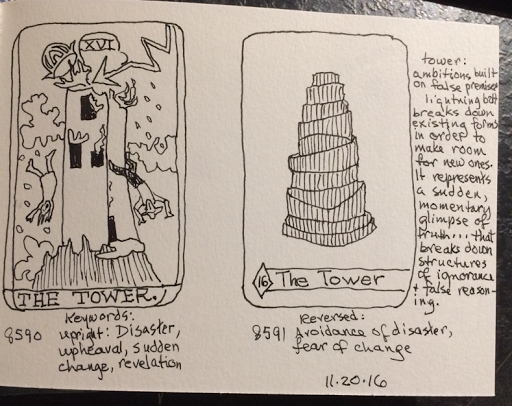 XVI
THE TOWER.
Keywords:
8590 upright: Disaster,
upheaval, sudden
change, revelation
16 The Tower
Reversed:
8591 Avoidance of disaster,
fear of change
11.20.16
tower:
ambitions built
on false premises
lightning bolt
breaks down
existing forms
in order to
make room
for new ones.
It represents
a sudden,
momentary
glimpse of
truth... that
breaks down
structures
of ignorance
+ false reason-
ing.